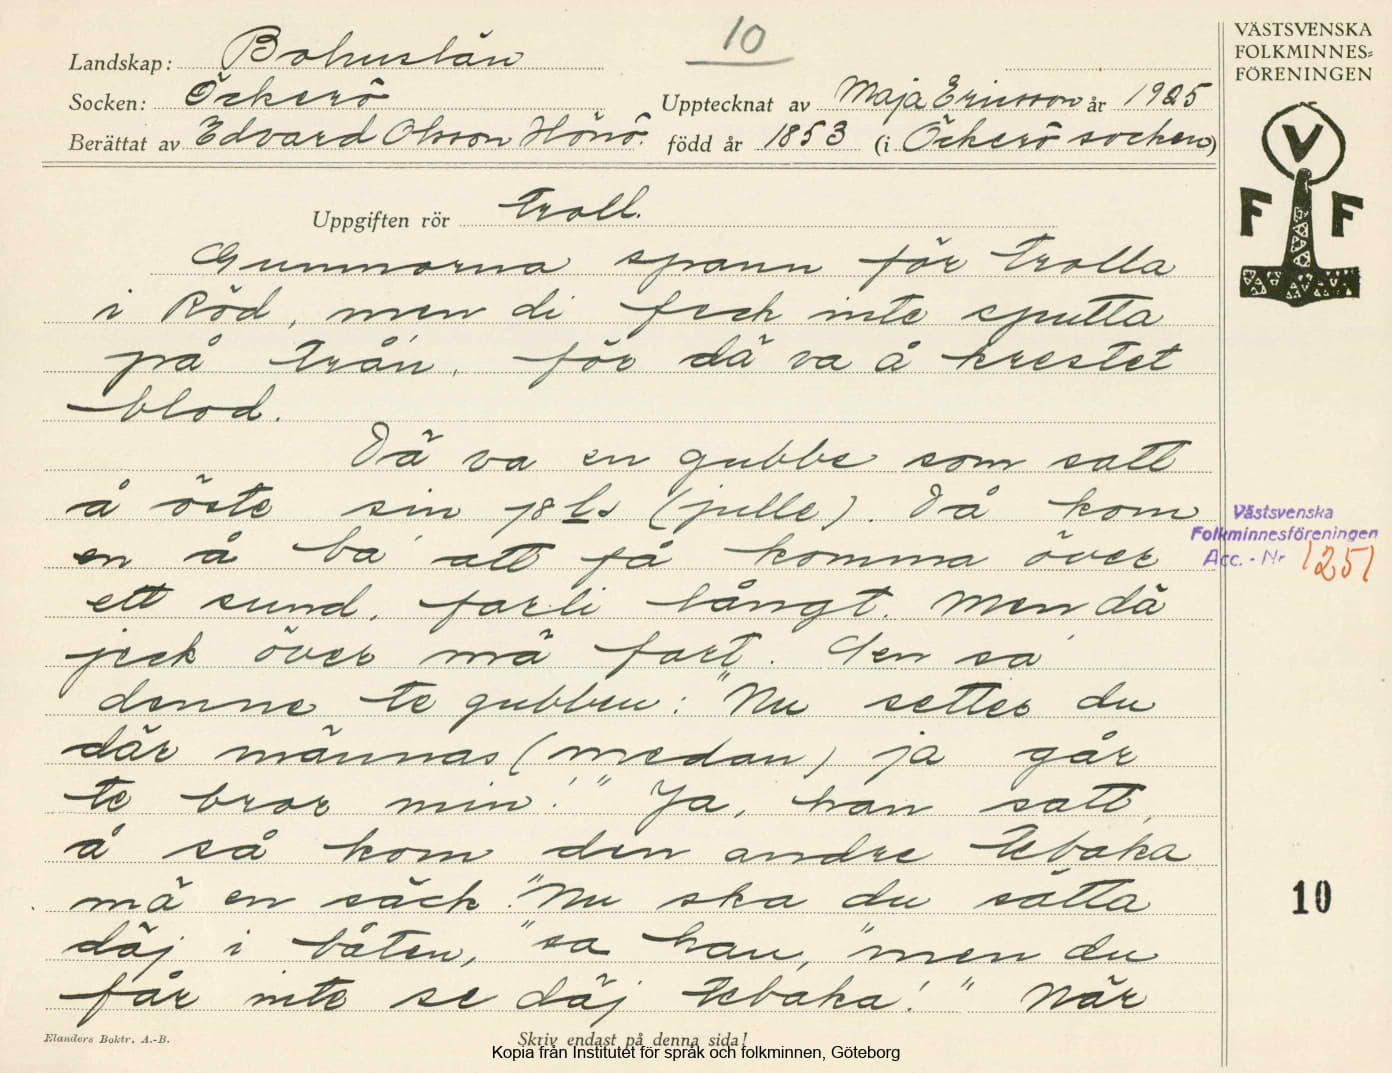 10
Landskap: Bohuslän
Socken: Öckerö
Upptecknat av Maja Ericsson år 1925
Berättat av Edvard Olsson Hönö. född år 1853 (i Öckerö socken)
VÄSTSVENSKA
FOLKMINNES=
FÖRENINGEN
V
F F
Uppgiften rör troll.
Gummorna spann för trolla
i Röd, men di feck inte sputta
på trån, för dä va å krestet
blod.
Dä va en gubbe som satt
å öste sin (julle). Då kom
en å ba' att få komma över
ett sund, farli långt. Men dä
jeck över mä fart. Den sa'
denne te gubben: "Nu setter du
där männas (medan) ja går
te bror min!" Ja, han satt,
å så kom den andre tebaka
mä en säck. "Nu ska du sätta
däj i båten," sa han, "men du
får inte se däj tebaka!" När
Västsvenska
Folkminnesföreningen
Acc. - Nr 1251
10
Elanders Boktr. A.-B.
Skriv endast på denna sida!
Kopia från Institutet för språk och folkminnen, Göteborg